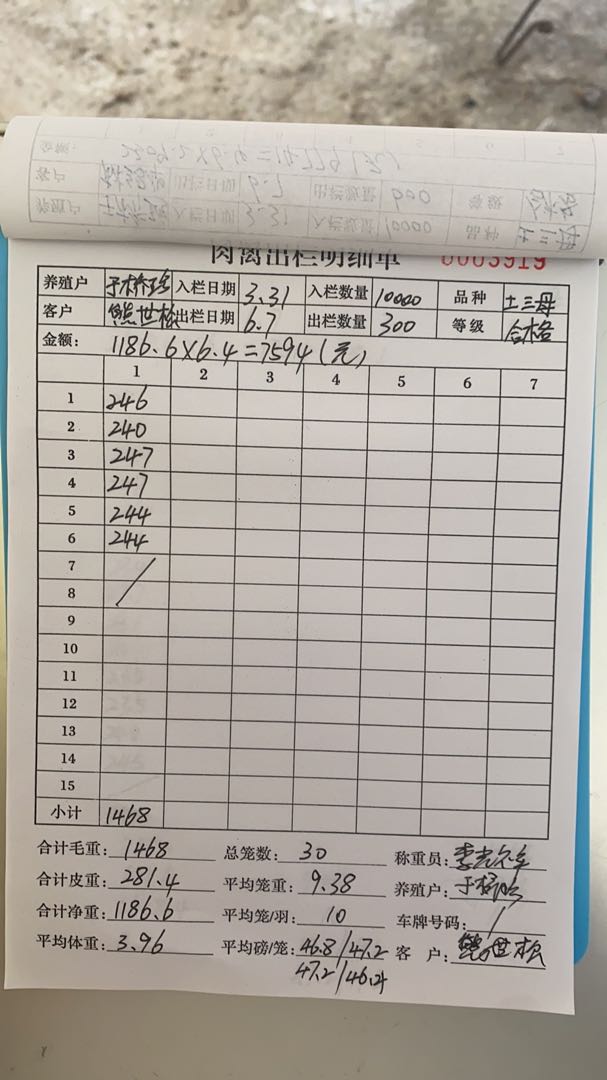 肉禽出栏明细单 0003919
养殖户 入栏日期 3.31 入栏数量 10000 品种 土三母
客户 熊世松 出栏日期 6.7 出栏数量 300 等级 合格
金额: 1186.6×6.4=7594(元)
1 2 3 4 5 6 7
1 246
2 240
3 247
4 247
5 244
6 244
7 /
8
9
10
11
12
13
14
15
小计 1468
合计毛重: 1468 总笼数: 30 称重员:
合计皮重: 281.4 平均笼重: 9.38 养殖户:
合计净重: 1186.6 平均笼/羽: 10 车牌号码: /
平均体重: 3.96 平均磅/笼: 46.8/47.2 客 户: 熊世松
47.2/46.4